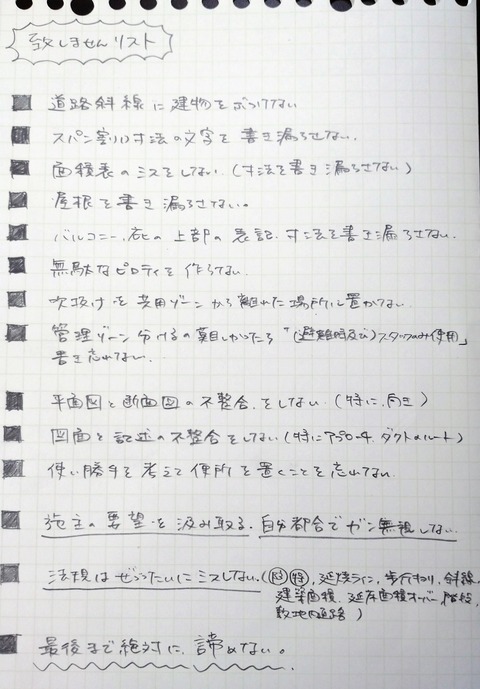 致しませんリスト
道路斜線に建物をぶつけない
スパン割り寸法の文字を書き漏らさない.
面積表のミスをしない(寸法を書き漏らさない)
屋根を書き漏らさない。
バルコニー、庇の上部の表記.寸法を書き漏らさない.
無駄なピロティを作らない
吹抜けを共用ゾーンから離れた場所に置かない
管理ゾーン分けるの難しかったら「(避難時及び)スタッフのみ使用」
書き忘れない.
平面図と断面図の不整合.をしない.(特に.向き)
図面と記述の不整合をしない(特にアプローチ.ダクトのルート)
使い勝手を考えて便所を置くことを忘れない
施主の要望を汲み取る.自分都合でガン無視しない.
法規はぜったいにミスしない.(防 特,延焼ライン,歩行キョリ,斜線,
建築面積.延床面積オーバー,階段,
敷地内通路)
最後まで絶対に.諦めない。